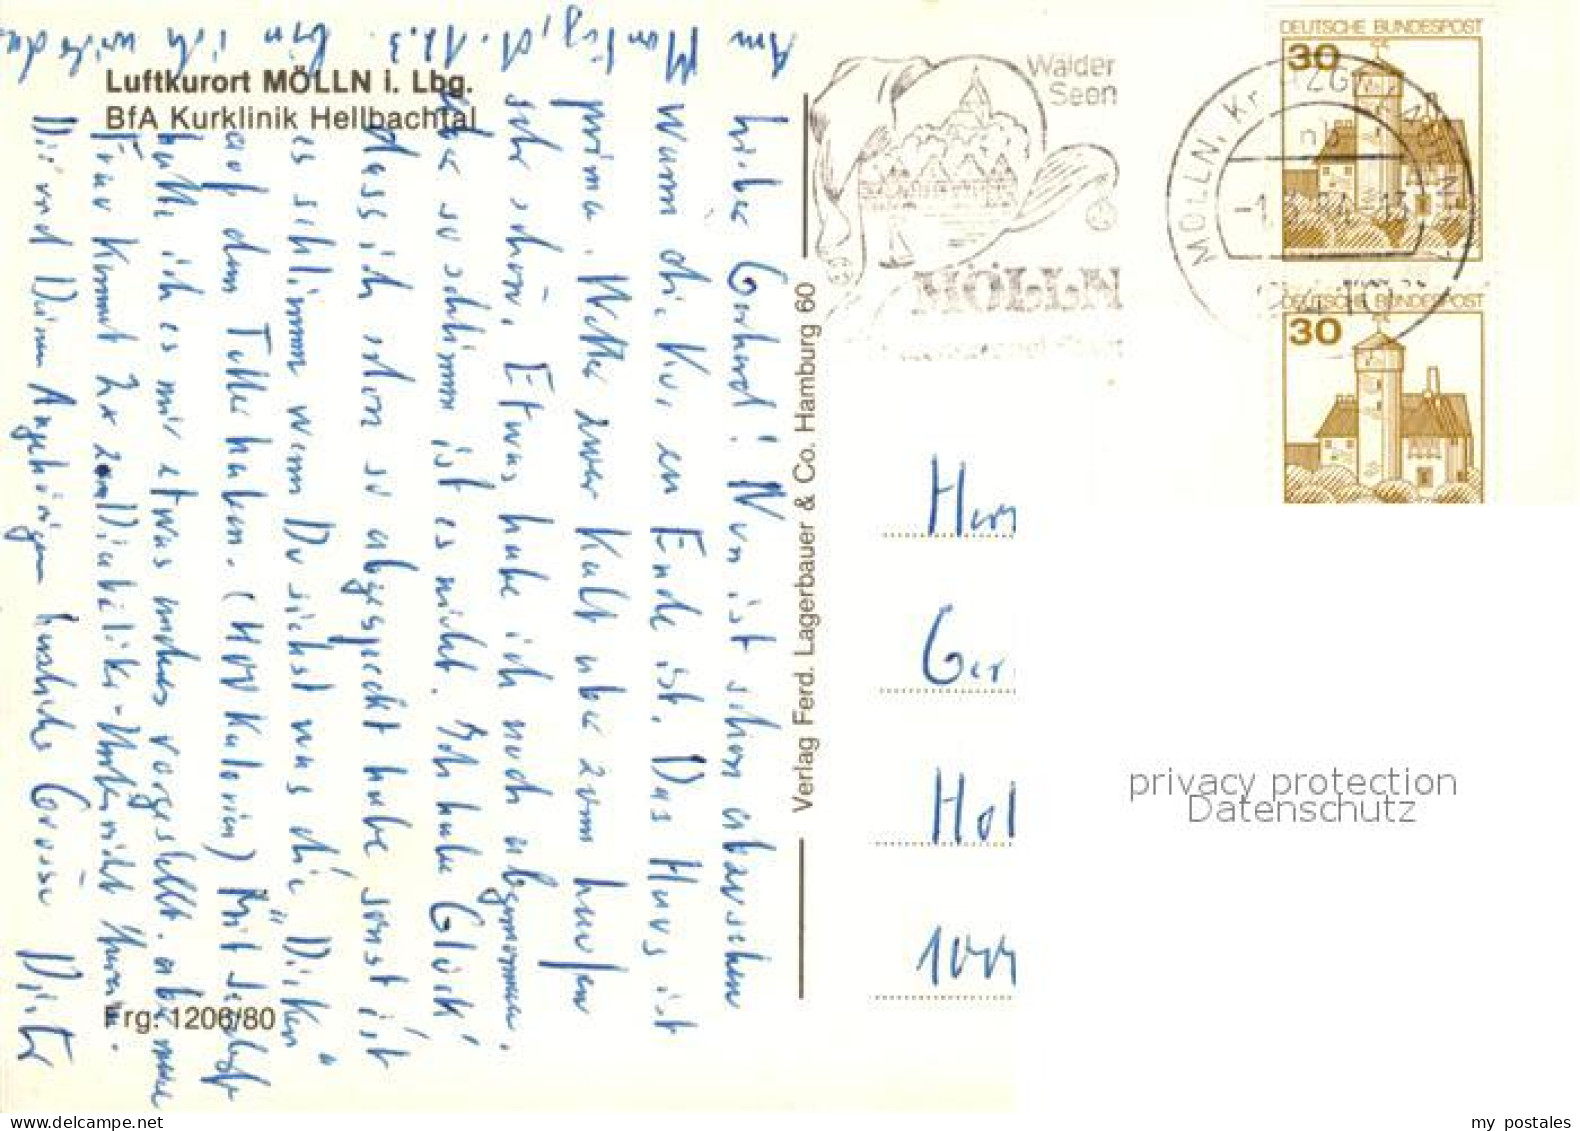 Luftkurort MÖLLN i. Lbg.
BfA Kurklinik Hellbachtal
Am Montag, d. 12.3. bin ich wieder da.
Lieber Gerhard! Nun ist schon abzusehen
wann die Kur zu Ende ist. Das Haus ist
prima. Wetter zwar kalt aber zum laufen
sehr schön. Etwas habe ich noch abgenommen.
aber so schlimm ist es nicht. Ich habe Glück
dass ich schon so abgespeckt habe sonst ist
es schlimm wenn Du siehst was die "Dicken"
auf dem Teller haben. ( Kalorien) Mit
hatte ich es mir etwas anders vorgestellt. aber
Frau kommt 2x zum Diabetiker-Unterricht
Dir und Deinen Angehörigen herzliche Grüsse Dieter
Frg. 1206/80
Verlag Ferd. Lagerbauer & Co. Hamburg 60
Wälder
Seen
MÖLLN
MÖLLN, Kr.
DEUTSCHE BUNDESPOST
30
DEUTSCHE BUNDESPOST
30
Herr
Ger
Hol
privacy protection
Datenschutz
my postales